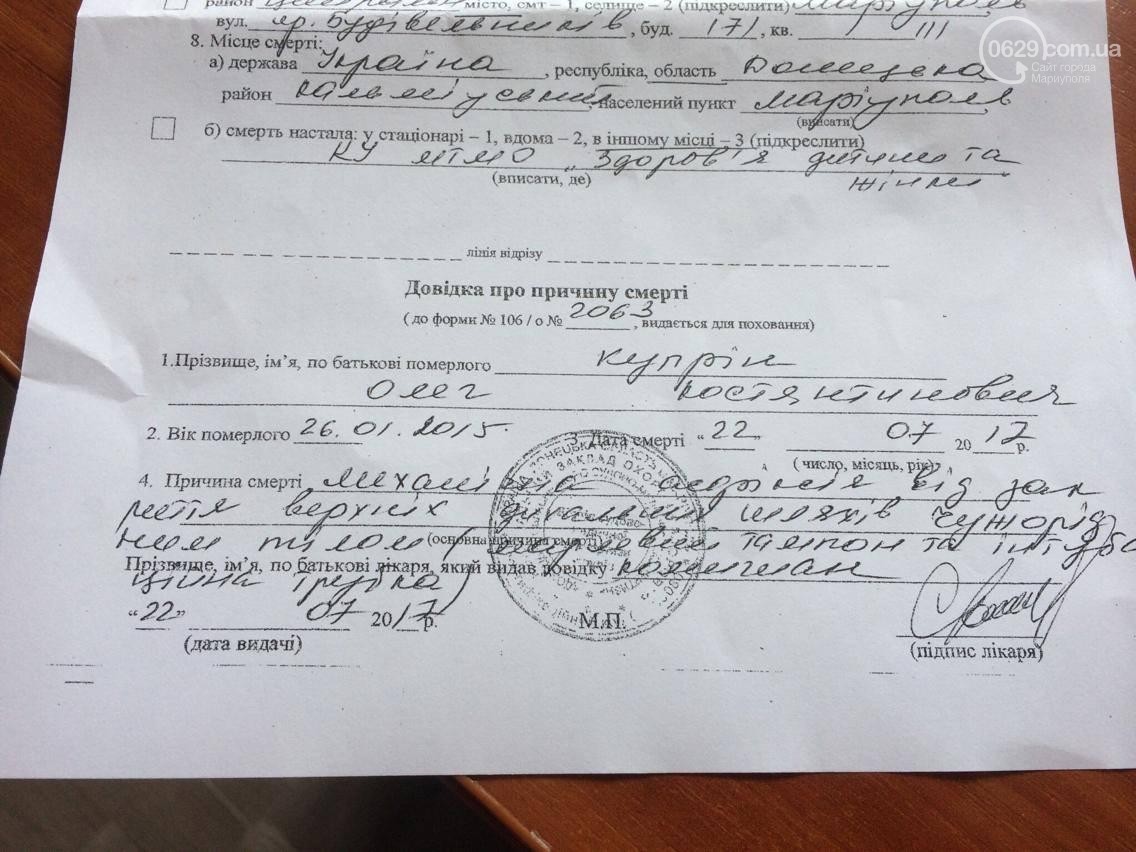 район Центральний місто, смт – 1, селище – 2 (підкреслити) Маріуполь
вул. пр. Будівельників, буд. 171, кв. 111
0629.com.ua
Сайт города
Мариуполя
8. Місце смерті:
а) держава Україна, республіка, область Донецька
район Кальміуський, населений пункт Маріуполь
(вписати)
б) смерть настала: у стаціонарі – 1, вдома – 2, в іншому місці – 3 (підкреслити)
КУ ММО „Здоров'я дитини та
жінки
(вписати, де)
лінія відрізу
Довідка про причину смерті
( до форми № 106 / о № 2063, видається для поховання)
1.Прізвище, ім’я, по батькові померлого Купрін
Олег Костянтинович
2. Вік померлого 26.01.2015. 3. Дата смерті “22” 07 2017р.
( число, місяць, рік)
4. Причина смерті Механічна асфіксія від зак
риття верхніх дихальних шляхів чужорід
ним тілом ( тампон та інтуба
(основна причина смерті)
Прізвище, ім’я, по батькові лікаря, який видав довідку
ційна трубка)
“22” 07 2017р. М.П.
(дата видачі) (підпис лікаря)